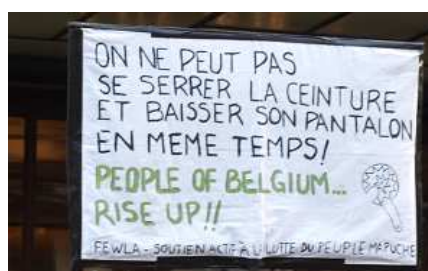 ON NE PEUT PAS
SE SERRER LA CEINTURE
ET BAISSER SON PANTALON
EN MEME TEMPS!
PEOPLE OF BELGIUM...
RISE UP!!
FEWLA - SOUTIEN ACTIF À LA LUTTE DU PEUPLE MAPUCHE